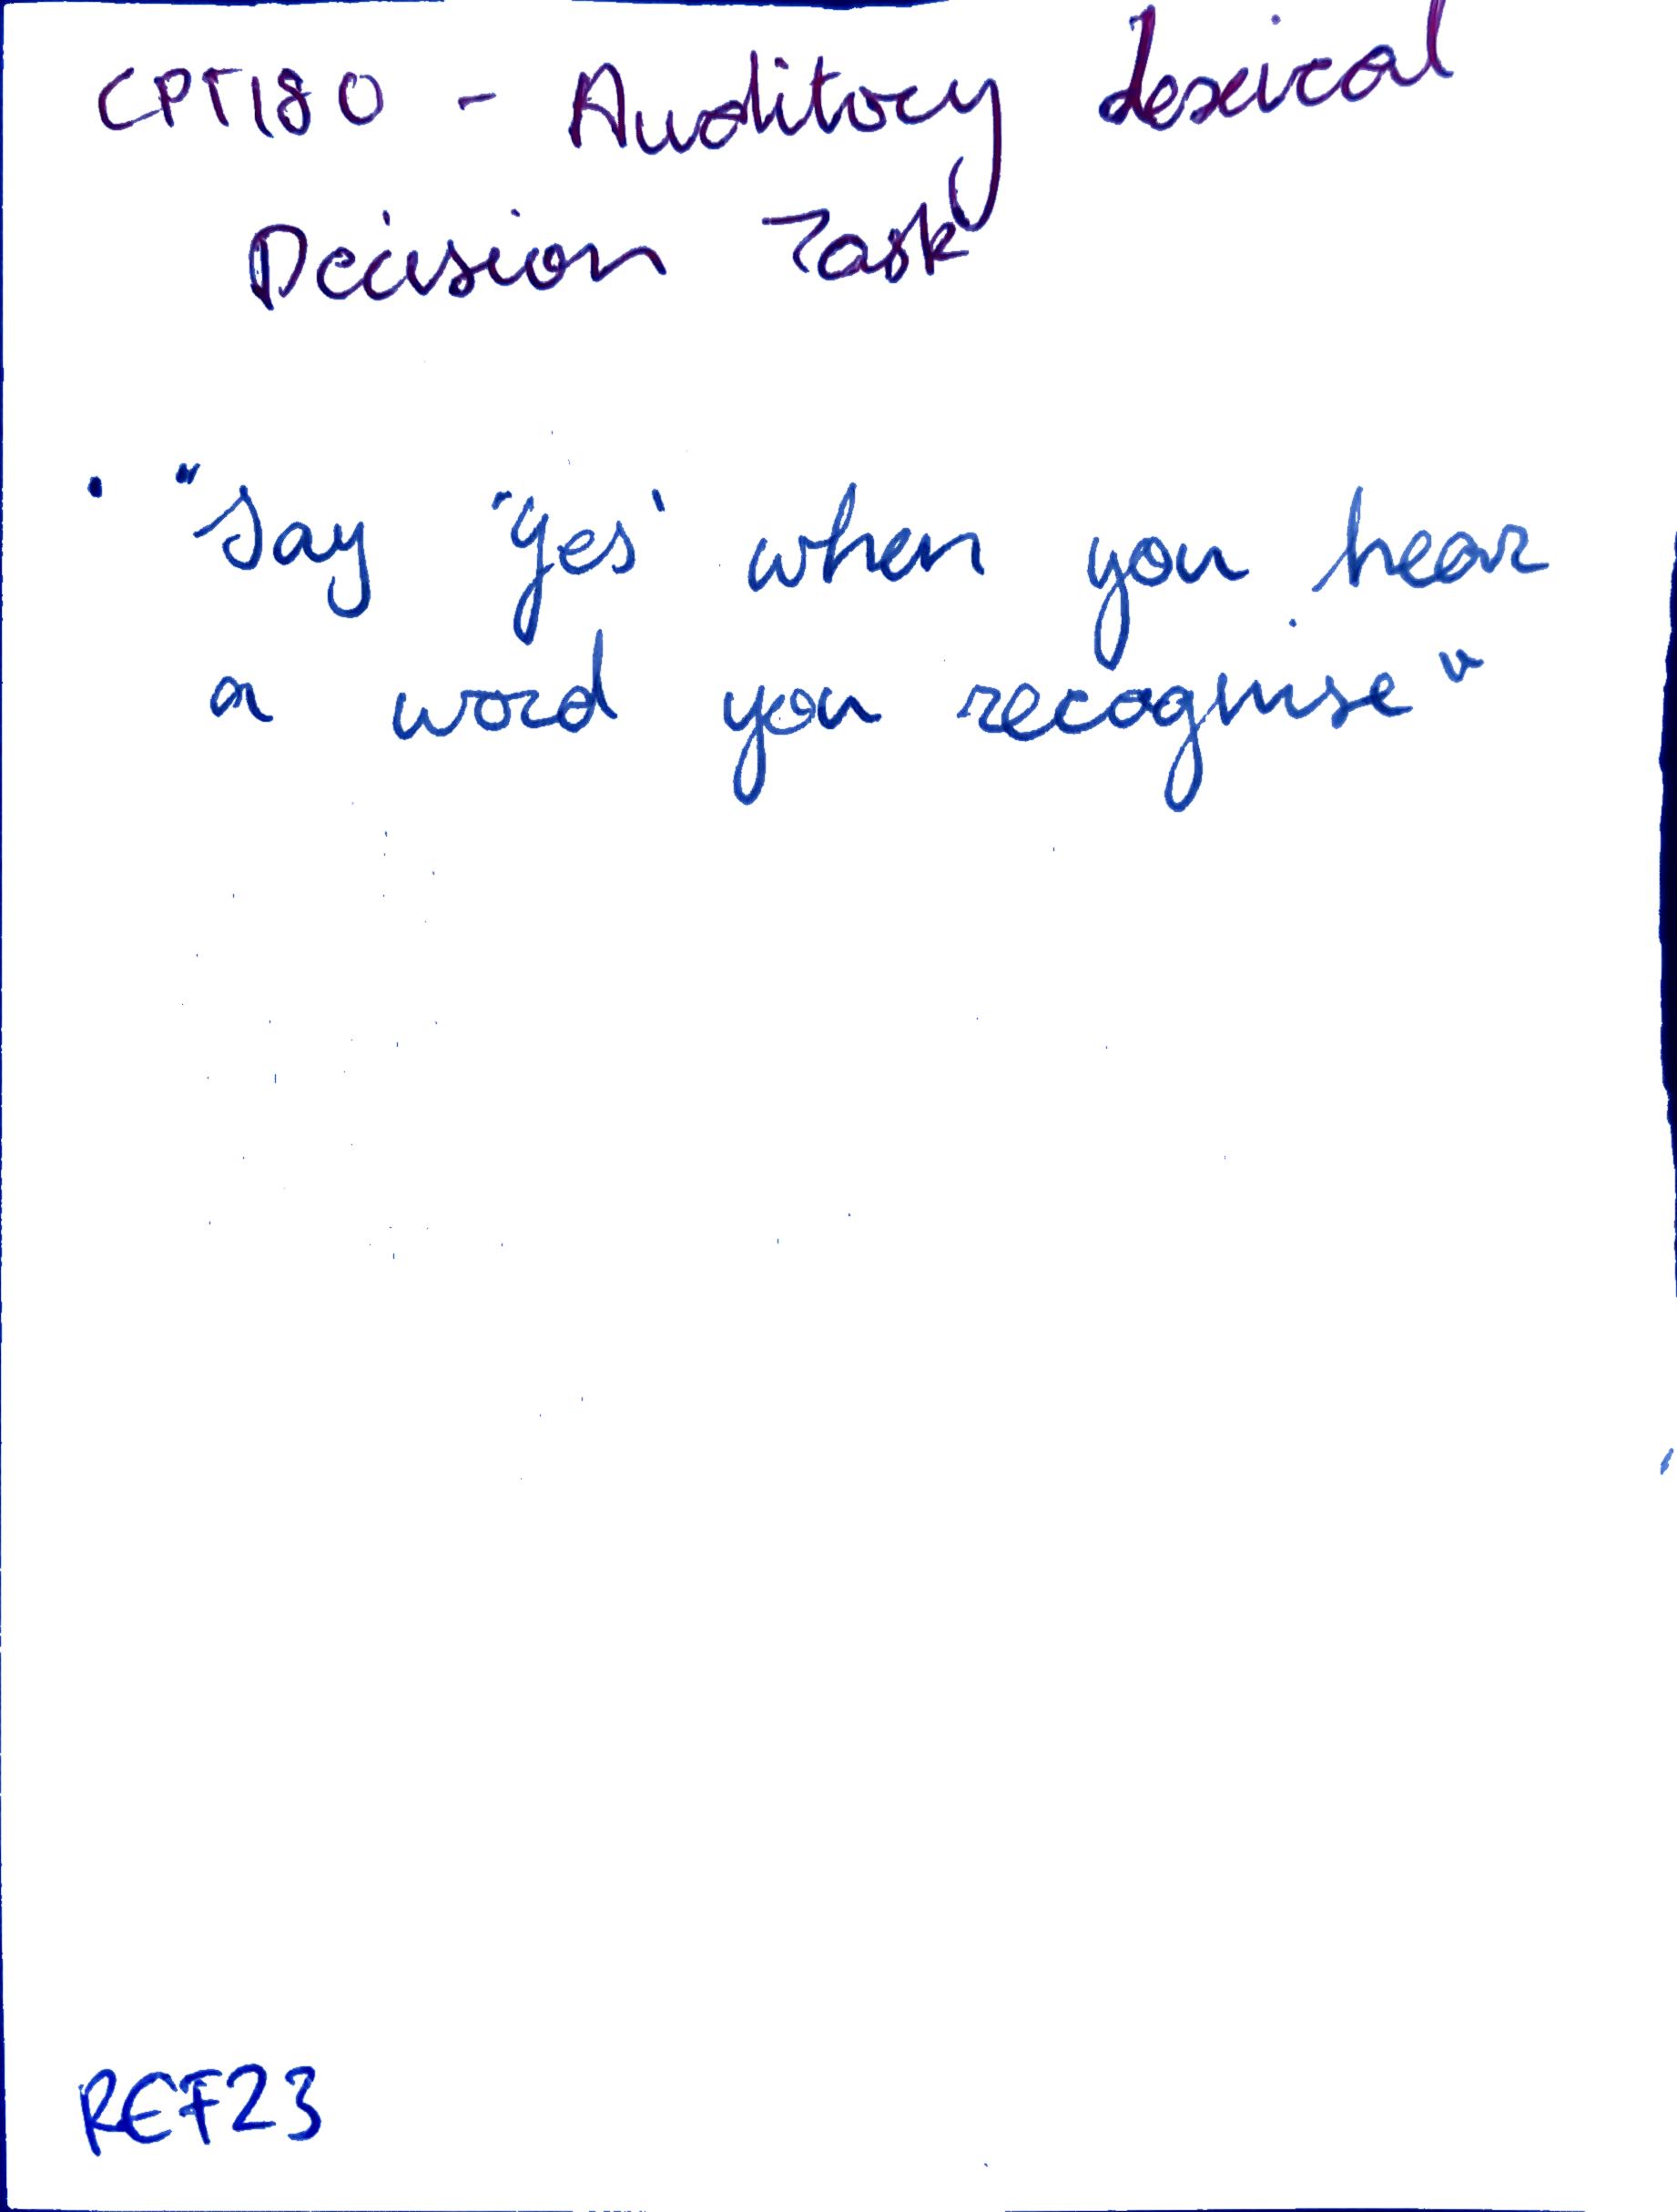 CPT180 - Auditory Lexical
Decision Task
• "Say 'Yes' when you hear
a word you recognise"
REF23